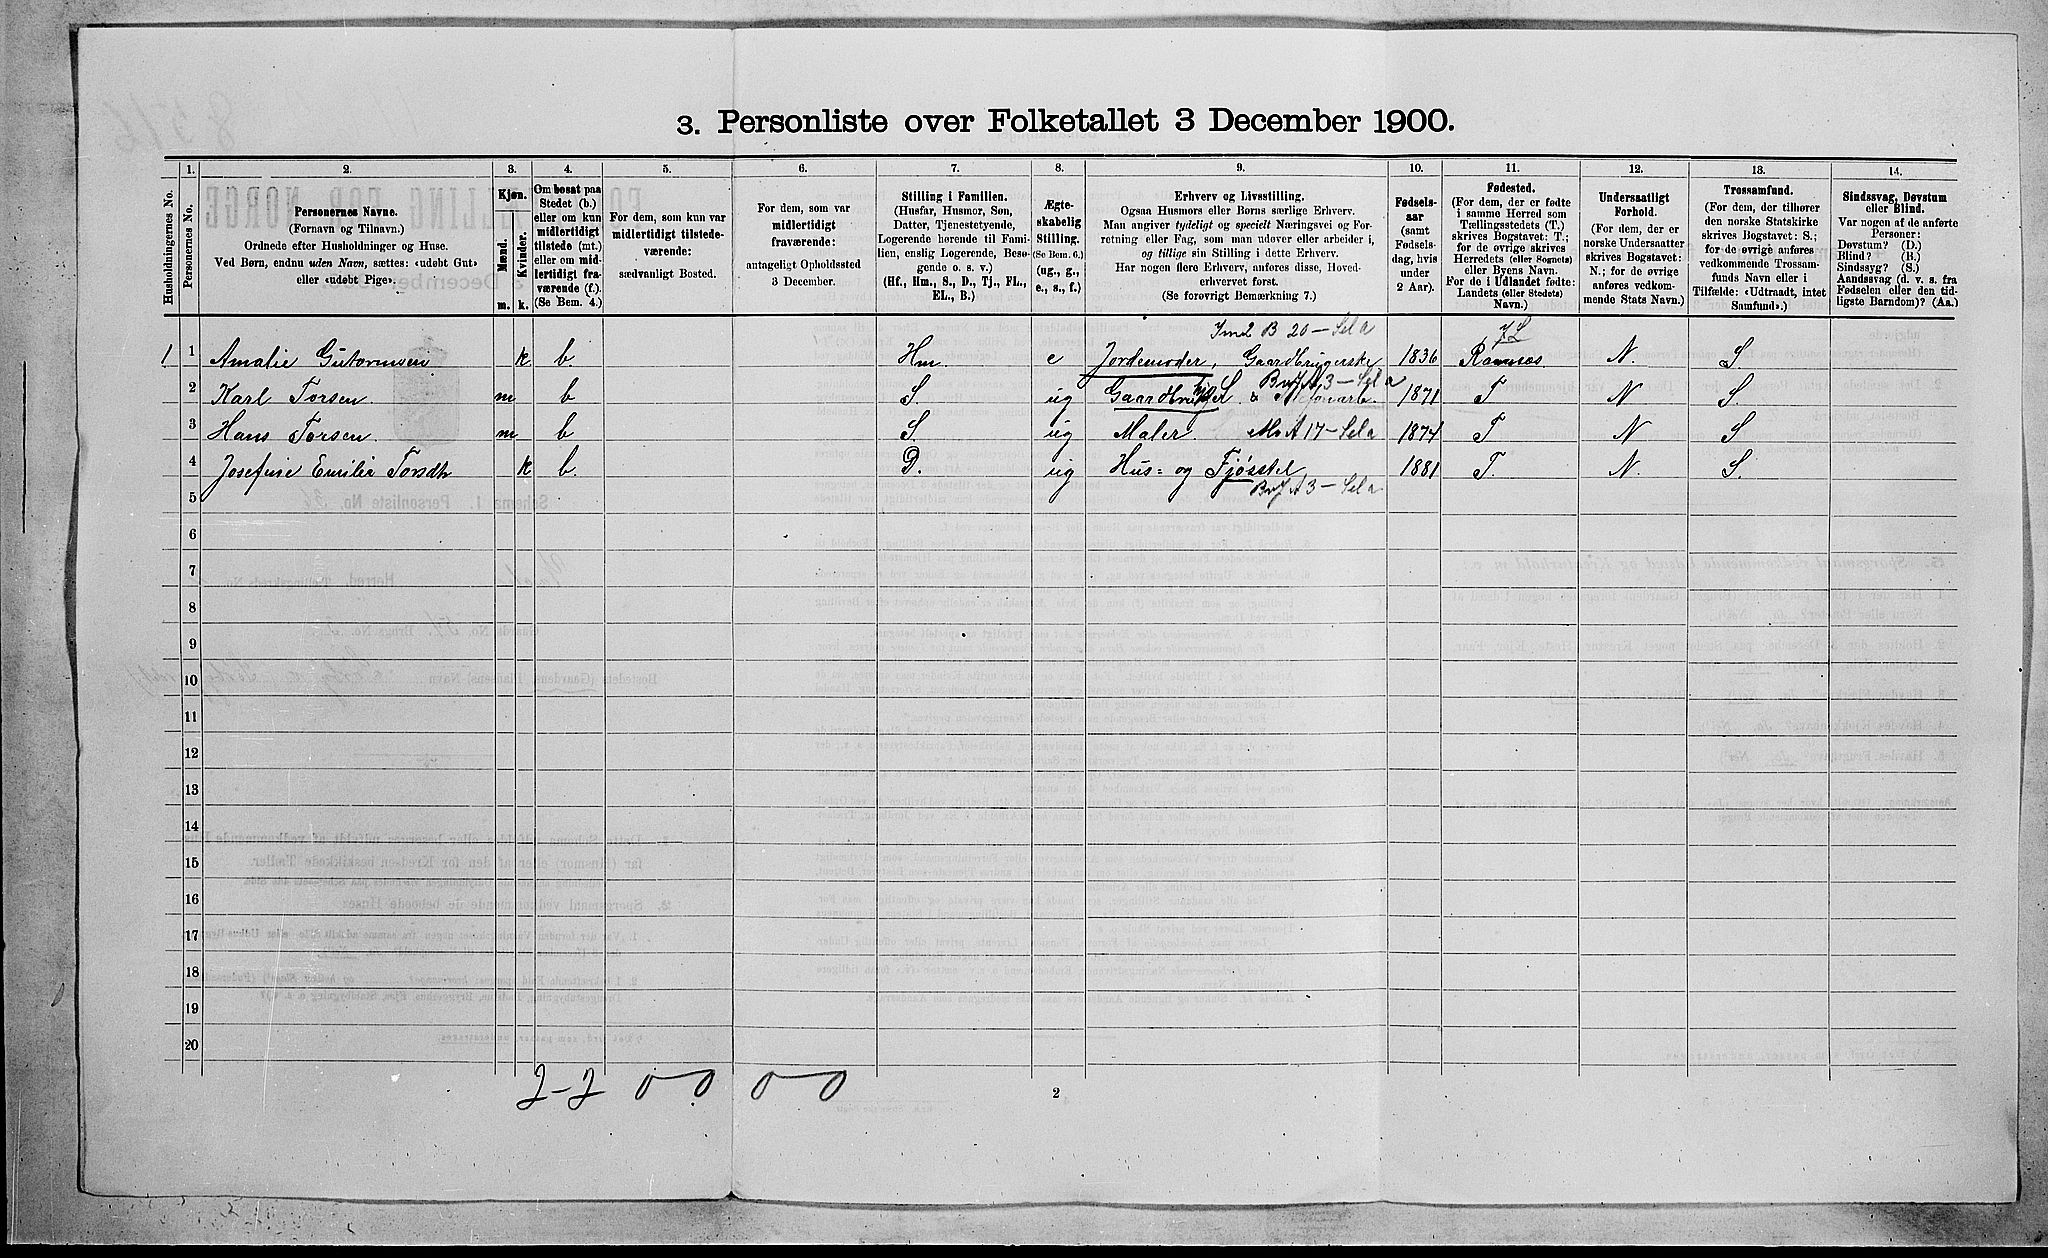 3. Personliste over Folketallet 3 December 1900.
Husholdningernes No.
1.
Personernes No.
2.
Personernes Navne.
(Fornavn og Tilnavn.)
Ordnede efter Husholdninger og Huse.
Ved Børn, endnu uden Navn, sættes: «udøbt Gut»
eller «udøbt Pige».
3.
Kjøn.
Mænd.
Kvinder.
m. k.
4.
Om bosat paa
Stedet (b.)
eller om kun
midlertidigt
tilstede (mt.)
eller om mid-
lertidigt fra-
værende (f.).
(Se Bem. 4.)
5.
For dem, som kun var
midlertidigt tilstede-
værende:
sædvanligt Bosted.
6.
For dem, som var
midlertidigt
fraværende:
antageligt Opholdssted
3 December.
7.
Stilling i Familien.
(Husfar, Husmor, Søn,
Datter, Tjenestetyende,
Logerende hørende til Fami-
lien, enslig Logerende, Besø-
gende o. s. v.)
(Hf., Hm., S., D., Tj., FL.,
EL., B.)
8.
Ægte-
skabelig
Stilling.
(Se Bem. 6.)
(ug., g.,
e., s., f.)
9.
Erhverv og Livsstilling.
Ogsaa Husmors eller Børns særlige Erhverv.
Man angiver tydeligt og specielt Næringsvei og For-
retning eller Fag, som man udøver eller arbeider i,
og tillige sin Stilling i dette Erhverv.
Har nogen flere Erhverv, anføres disse, Hoved-
erhvervet først.
(Se forøvrigt Bemærkning 7.)
10.
Fødsels-
aar
(samt
Fødsels-
dag, hvis
under
2 Aar).
11.
Fødested.
(For dem, der er fødte
i samme Herred som
Tællingsstedets (T.)
skrives Bogstavet: T.;
for de øvrige skrives
Herredets (eller Sognets)
eller Byens Navn.
For de i Udlandet fødte:
Landets (eller Stedets)
Navn.)
12.
Undersaatligt
Forhold.
(For dem, der er
norske Undersaatter
skrives Bogstavet:
N.; for de øvrige
anføres vedkom-
mende Stats Navn.)
13.
Trossamfund.
(For dem, der tilhører
den norske Statskirke
skrives Bogstavet: S.;
for de øvrige anføres
vedkommende Trossam-
funds Navn eller i
Tilfælde: «Udtraadt, intet
Samfund».)
14.
Sindssvag, Døvstum
eller Blind.
Var nogen af de anførte
Personer:
Døvstum? (D.)
Blind? (B.)
Sindssyg? (S.)
Aandssvag (d. v. s. fra
Fødselen eller den tid-
ligste Barndom)? (Aa.)
B 20 – Sela JL
1 1 Amalie Gutormsen k b. Hm. e Jordemoder, Gaardbrugerske 1836 N. S.
A 3 – Sela
2 Karl Torsen m b S. ug 1871 T N S.
3 Hans Torsen. m b S. ug Maler. A 17 – Sela 1874 T N S
4 Josefine Emilie k b. D. ug Hus= og Fjøsstel 1881 T. N. S.
A 3 – Sela
5
6
7
8
9
10
11
12
13
14
15
16
17
18
19
20
2-2 0 0 0 0
2